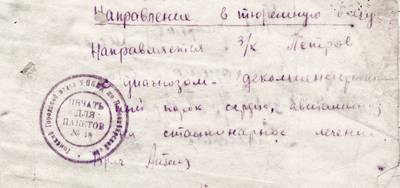 Направление в тюремную б-цу
Направляется з/к Петров
с диагнозом - декомпенсирован
ный порок сердца, авитаминоз
для стационарное лечение
Врач
ПЕЧАТЬ
ДЛЯ
ПАКЕТОВ
№ 18